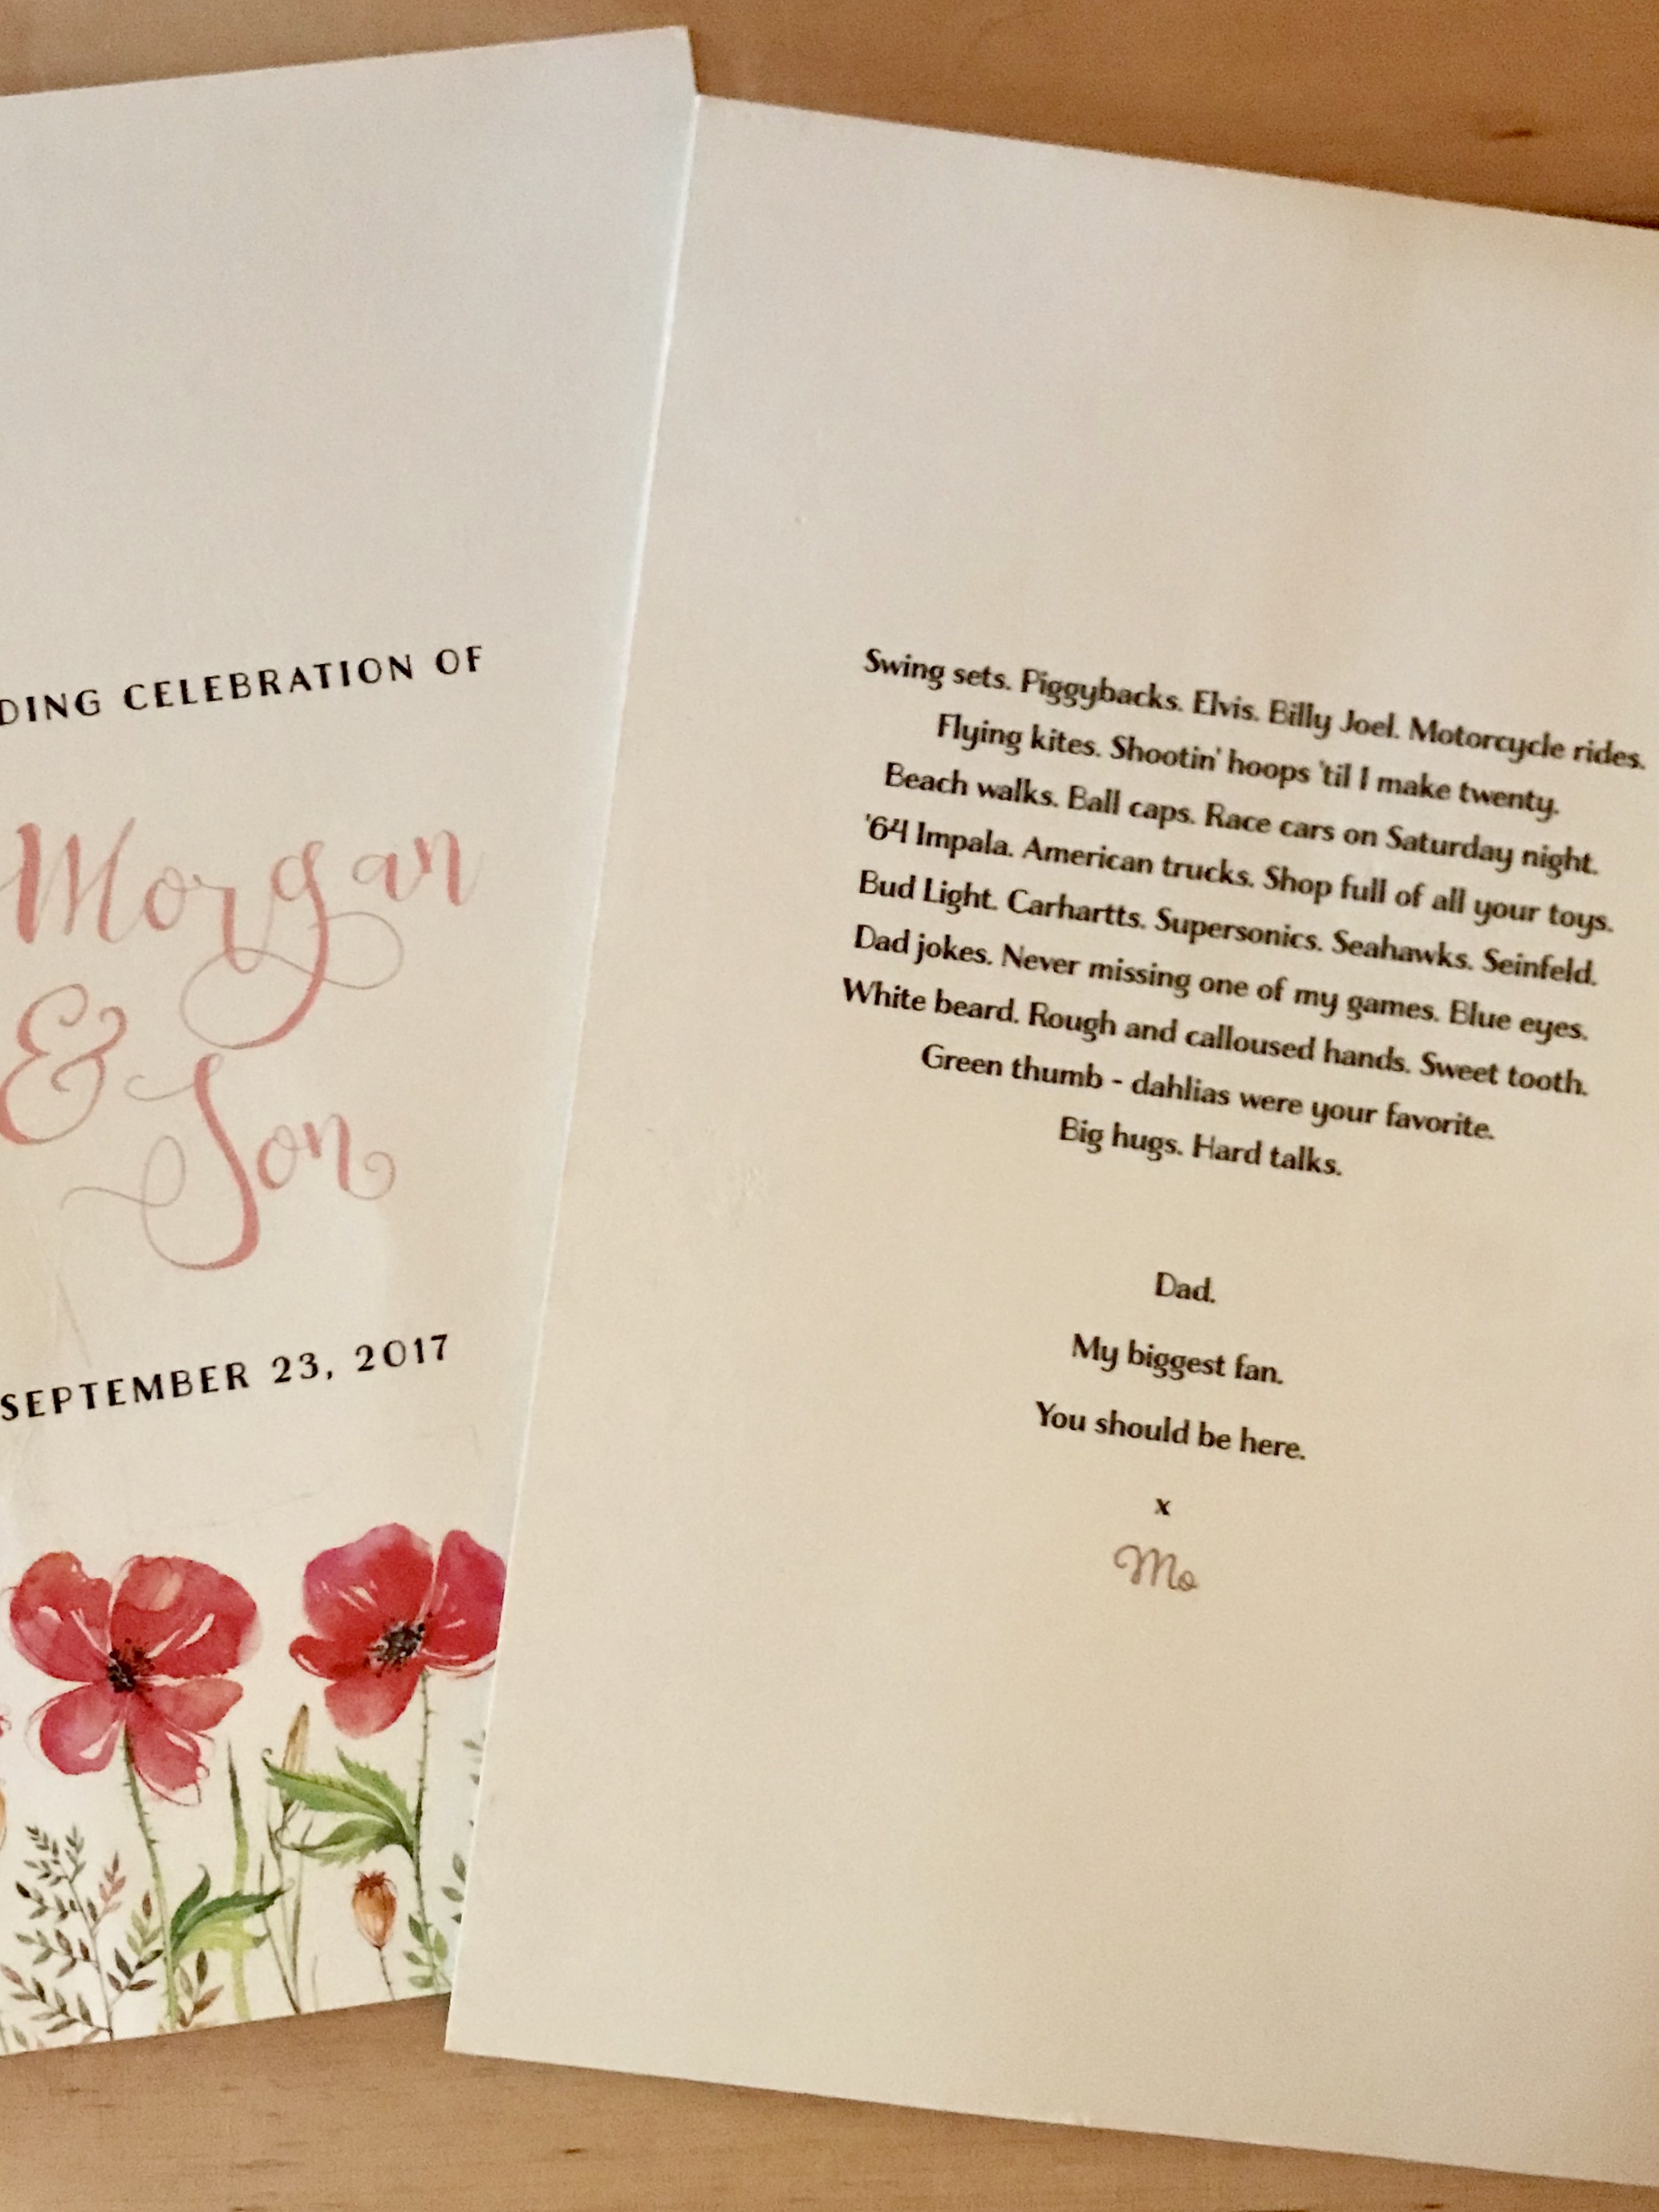 DING CELEBRATION OF
Morgan
& Son
SEPTEMBER 23, 2017
Swing sets. Piggybacks. Elvis. Billy Joel. Motorcycle rides.
Flying kites. Shootin' hoops 'til I make twenty.
Beach walks. Ball caps. Race cars on Saturday night.
'64 Impala. American trucks. Shop full of all your toys.
Bud Light. Carhartts. Supersonics. Seahawks. Seinfeld.
Dad jokes. Never missing one of my games. Blue eyes.
White beard. Rough and calloused hands. Sweet tooth.
Green thumb - dahlias were your favorite.
Big hugs. Hard talks.
Dad.
My biggest fan.
You should be here.
x
Mo